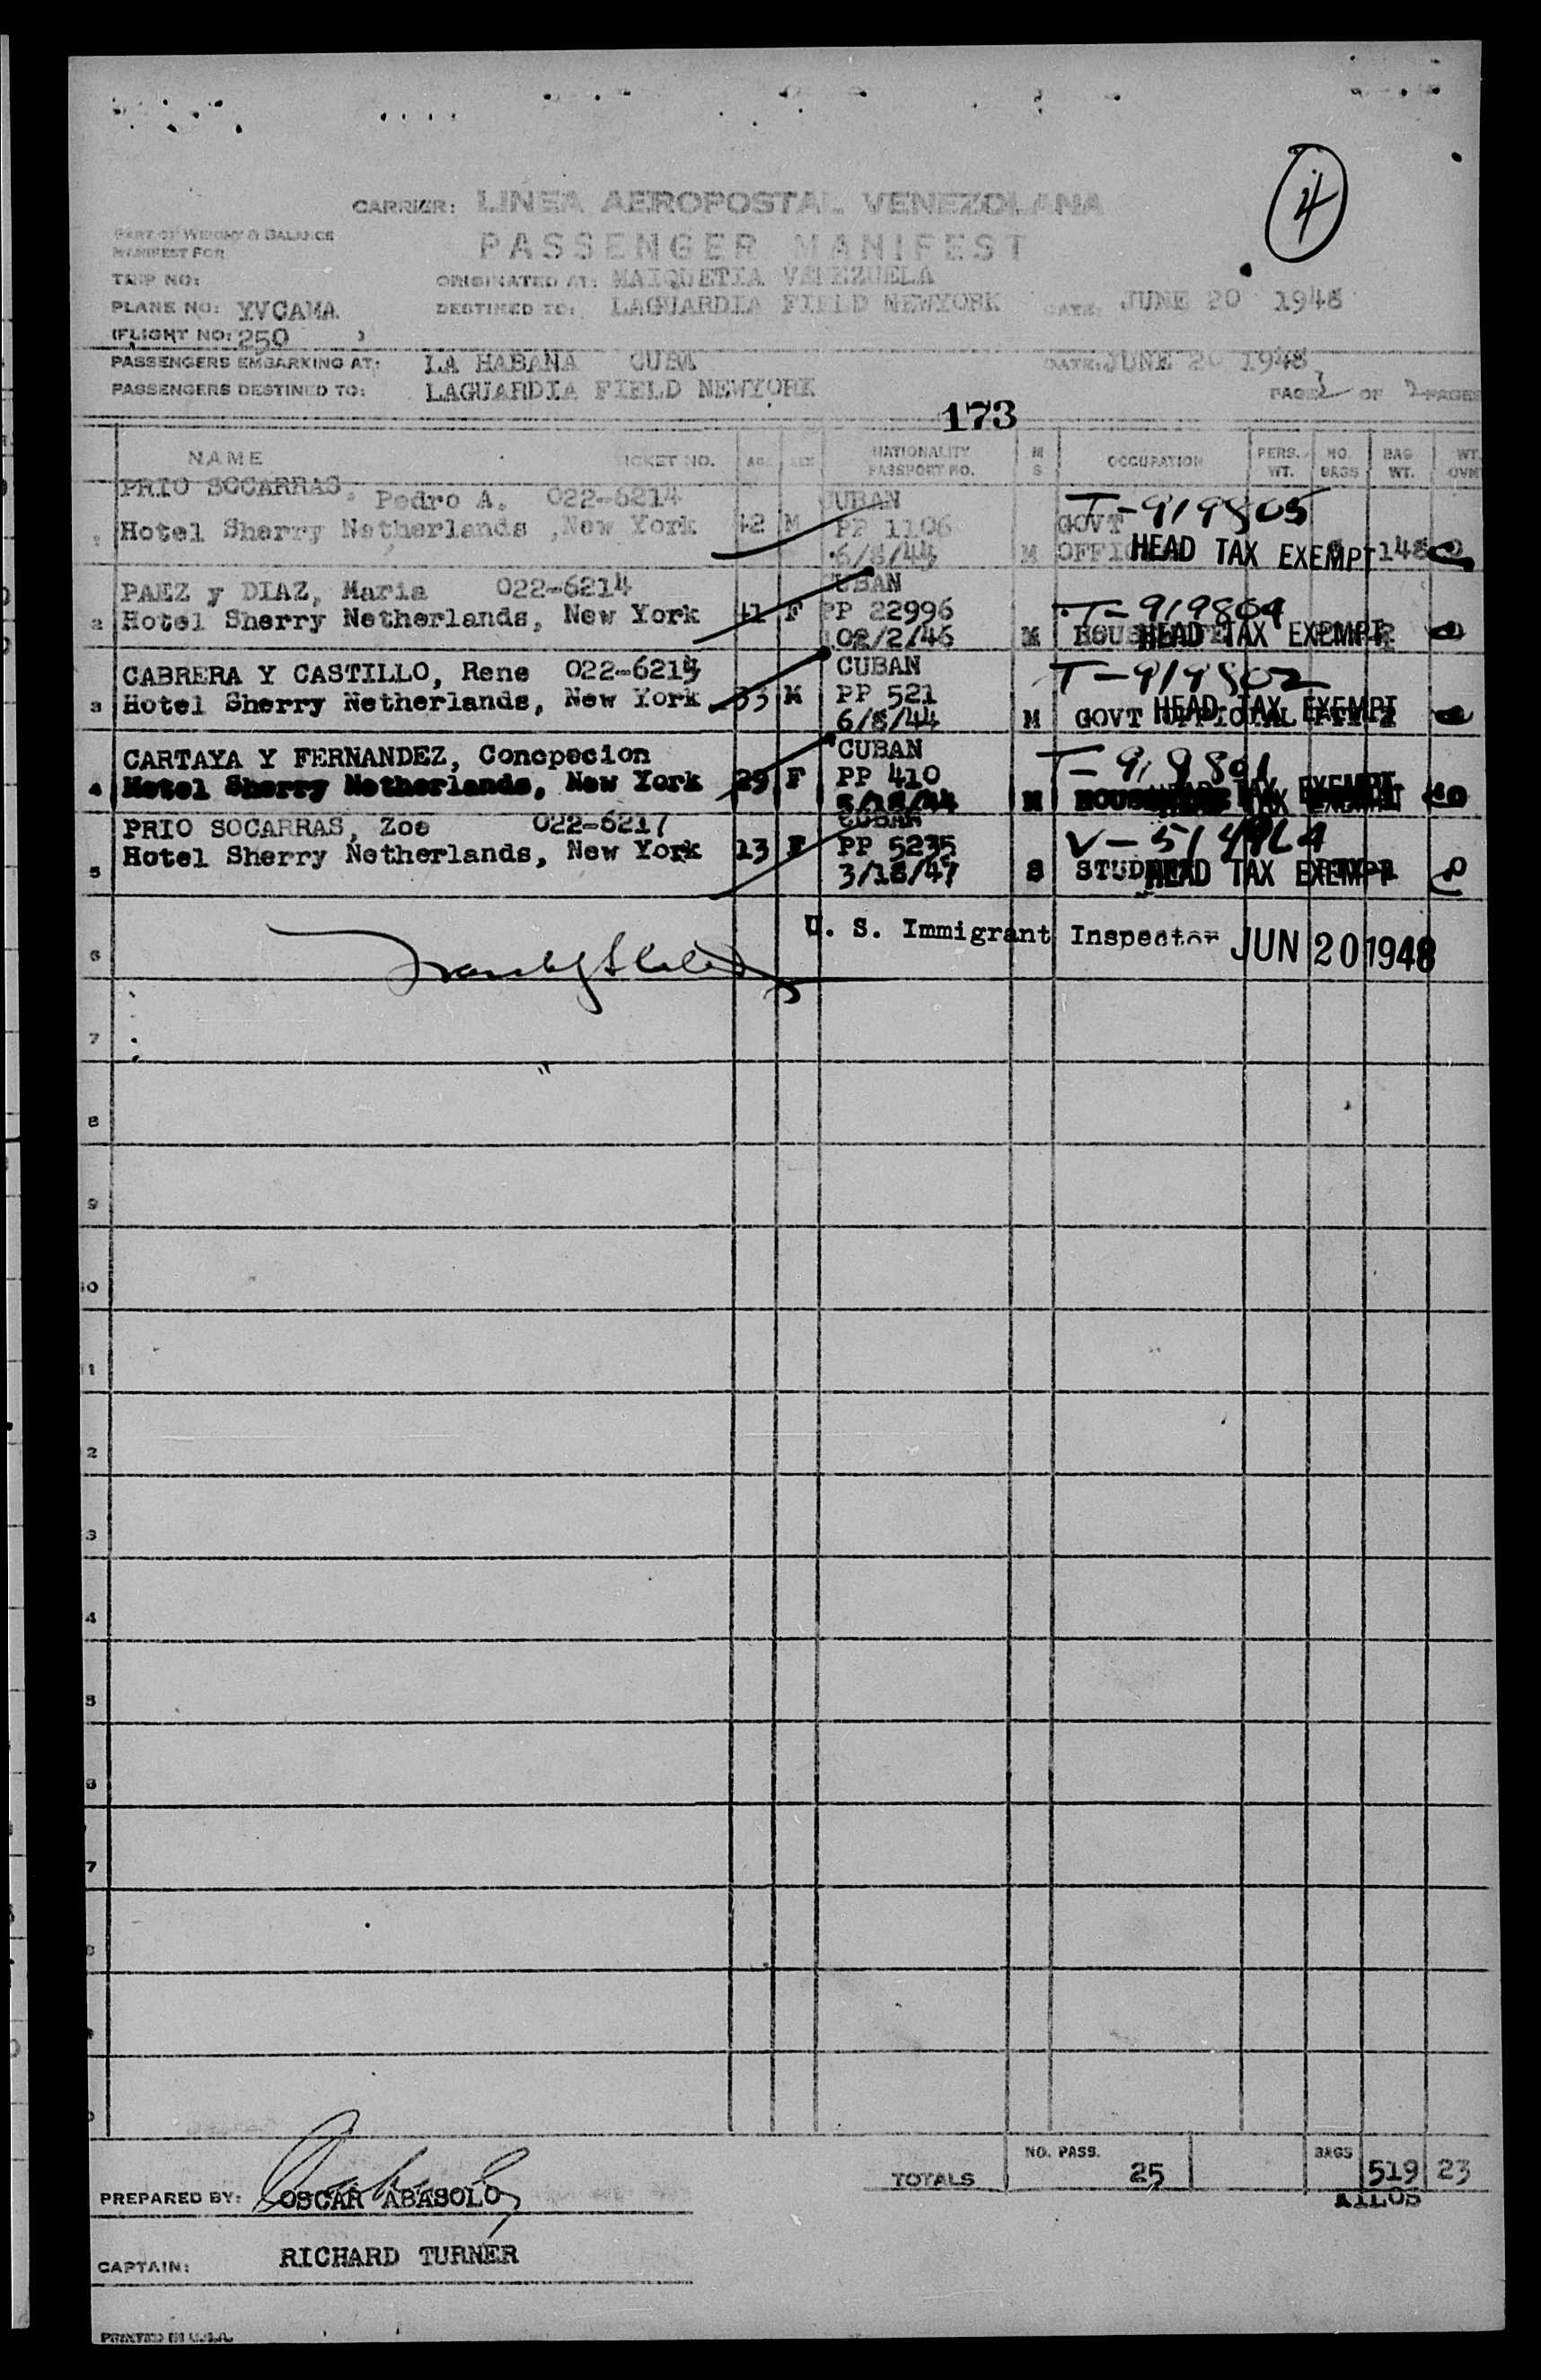 4
CARRIER: LINEA AEROPOSTAL VENEZOLANA
PART OF WEIGHT & BALANCE
MANIFEST FOR
PASSENGER MANIFEST
TRIP NO:
ORIGINATED AT: MAIQUETIA VENEZUELA
PLANE NO: YVCAMA
DESTINED TO: LAGUARDIA FIELD NEWYORK DATE: JUNE 20 1948
(FLIGHT NO: 250 )
PASSENGERS EMBARKING AT: LA HABANA CUBA DATE: JUNE 20 1948
PASSENGERS DESTINED TO: LAGUARDIA FIELD NEWYORK PAGE 2 OF 2 PAGES
173
NAME TICKET NO. AGE SEX NATIONALITY PASSPORT NO. M S OCCUPATION PERS. WT. NO. BAGS BAG WT. WT. OVM
PRIO SOCARRAS, Pedro A. 022-6214 CUBAN T-919805
1 Hotel Sherry Netherlands ,New York 42 M PP 1106 GOVT
6/8/44 M HEAD TAX EXEMPT 148
PAEZ y DIAZ, Maria 022-6214 CUBAN T-919804
2 Hotel Sherry Netherlands, New York 41 F PP 22996
08/2/46 M HEAD TAX EXEMPT
CABRERA Y CASTILLO, Rene 022-6215 CUBAN T-919802
3 Hotel Sherry Netherlands, New York 33 M PP 521
6/8/44 M GOVT OFFICIAL HEAD TAX EXEMPT
CARTAYA Y FERNANDEZ, Concpecion CUBAN T-919801
4 Hotel Sherry Netherlands, New York 29 F PP 410
5/18/44 M TAX EXEMPT
PRIO SOCARRAS, Zoe 022-6217 CUBAN
5 Hotel Sherry Netherlands, New York 13 F PP 5235
3/18/47 S HEAD TAX EXEMPT
U. S. Immigrant Inspector JUN 20 1948
6
7
8
9
10
11
2
3
4
5
6
7
8
TOTALS NO. PASS. 25 BAGS 519 23
KILOS
PREPARED BY: OSCAR ABASOLO
CAPTAIN: RICHARD TURNER
PRINTED IN U.S.A.